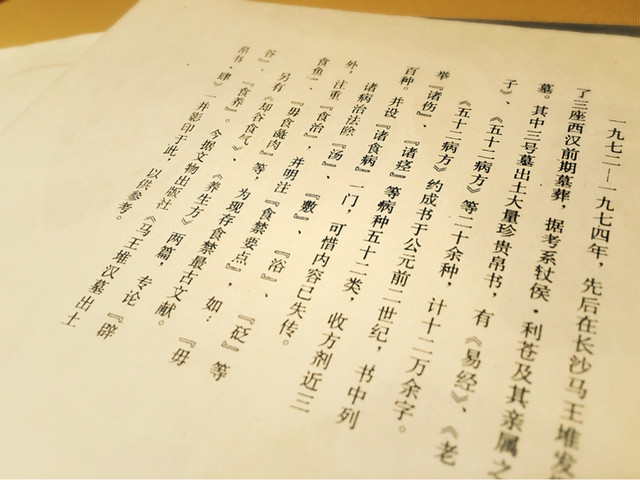 一九七二—一九七四年，先后在长沙马王堆发
了三座西汉前期墓葬，据考系轪侯·利苍及其亲属之
墓。其中三号墓出土大量珍贵帛书，有《易经》、《老
子》、《五十二病方》等二十余种，计十二万余字。
《五十二病方》约成书于公元前二世纪，书中列
举『诸伤』、『诸痉』等病种五十二类，收方剂近三
百种。并设『诸食病』一门，可惜内容已失传。
诸病治法除『汤』、『敷』、『浴』、『砭』等
外，注重『食治』，并明注『食禁要点』，如：『毋
食鱼』、『毋食彘肉』等，为现存食禁最古文献。
另有《却谷食气》、《养生方》两篇，专论『辟
谷』、『食养』。今据文物出版社《马王堆汉墓出土
帛书·肆》一并影印于此，以供参考。